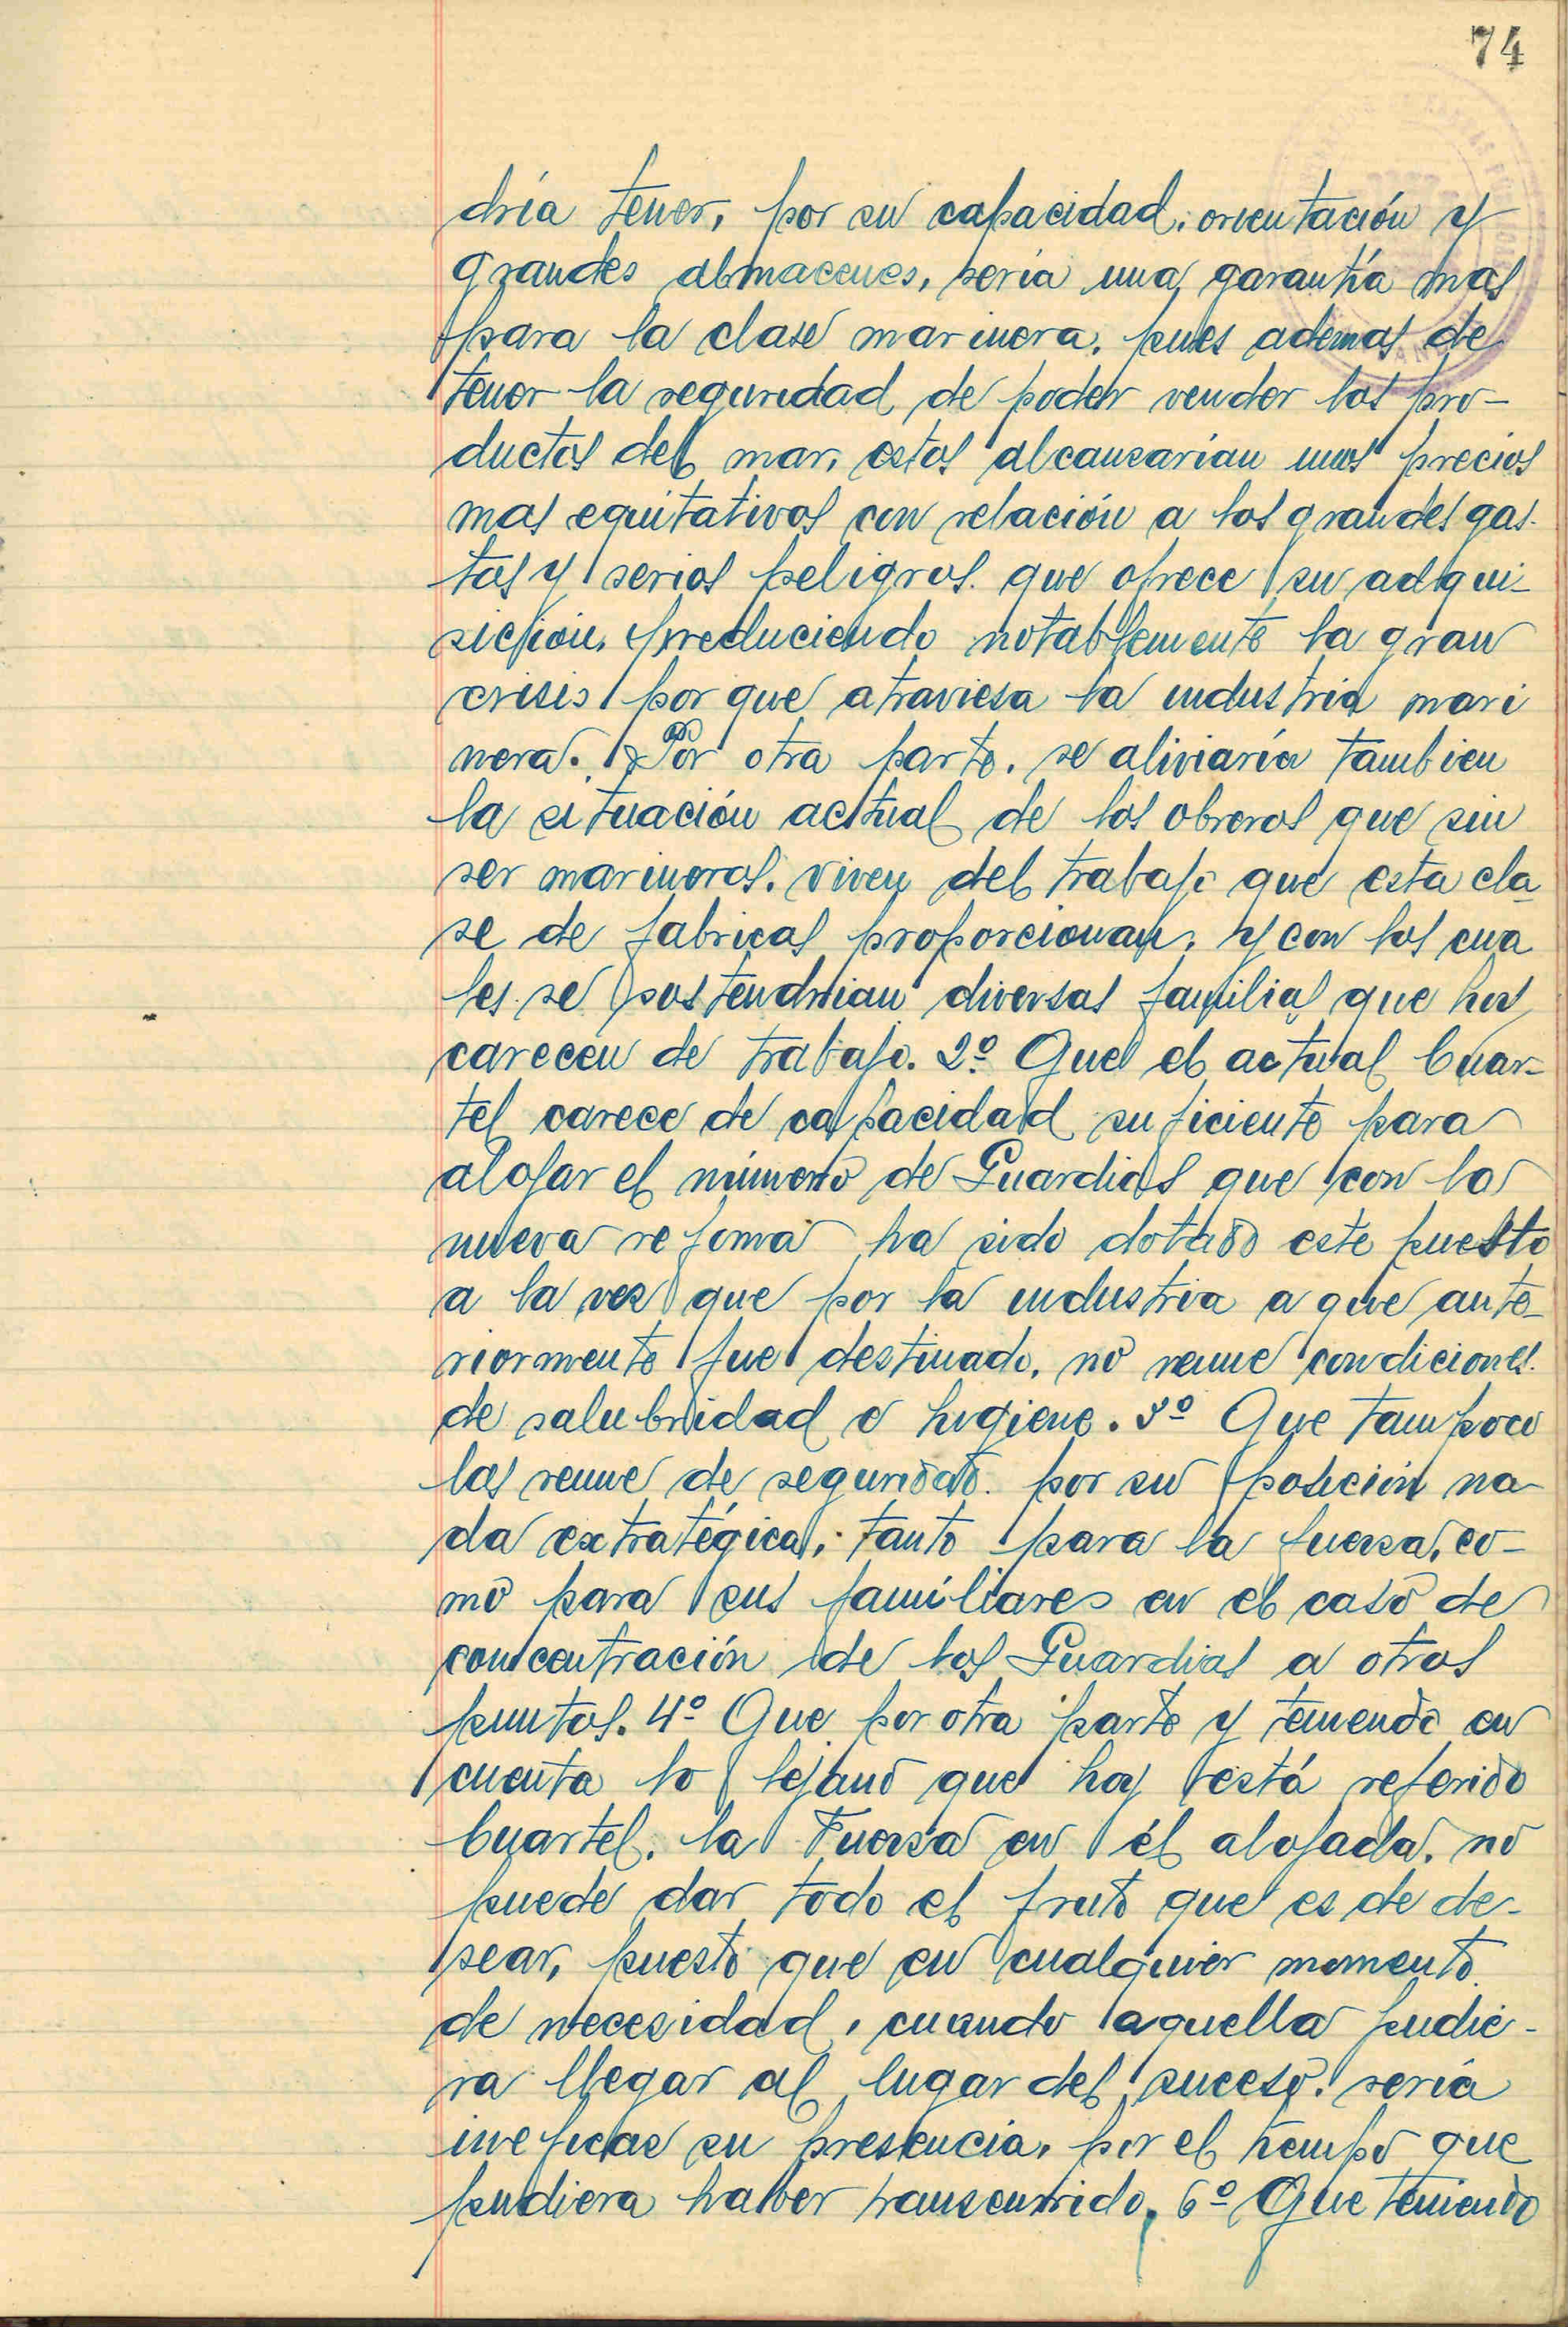 74
dría tener, por su capacidad, orientación y
grandes almacenes, seria una garantía mas
para la clase marinera, pues ademas de
tener la seguridad de poder vender los pro-
ductos del mar, estos alcansarian unos precios
mas equitativos con relación a los grandes gas-
tos y serios peligros que ofrece su adqui-
sición, reduciendo notablemente la gran
crisis por que atraviesa la industria mari
nera. Por otra parte, se aliviaría tambien
la situación actual de los obreros que sin
ser marineros, viven del trabajo que esta cla-
se de fabricas proporcionan, y con los cua
les se sostendrian diversas familias que hoy
carecen de trabajo. 2º Que el actual Cuar-
tel carece de capacidad suficiente para
alojar el número de Guardias que con la
nueva reforma ha sido dotado este puesto
a la vez que por la industria a que ante-
riormente fue destinado, no reune condiciones
de salubridad e higiene. 3º Que tampoco
las reune de seguridad por su posición na-
da extratégica, tanto para la fuersa, co-
mo para sus familiares en el caso de
concentración de los Guardias a otros
puntos. 4º Que por otra parte y teniendo en
cuenta lo lejano que hoy está referido
Cuartel, la Fuersa en él alojada, no
puede dar todo el fruto que es de de-
sear, puesto que en cualquier momento
de necesidad, cuando aquella pudie-
ra llegar al lugar del suceso, sería
ineficae su presencia, por el tiempo que
pudiera haber transcurrido. 6º Que teniendo